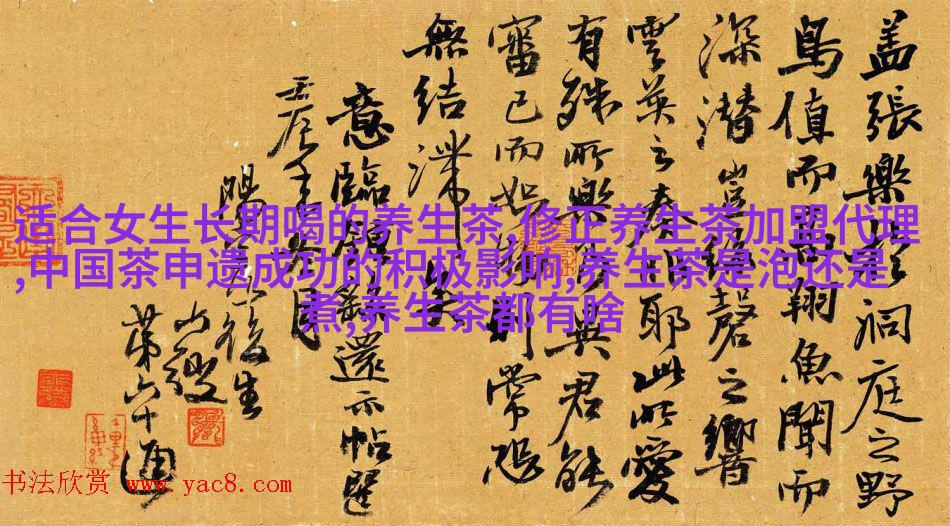 盖張樂於洞庭之野
鳥值而高翔魚聞而
深潜豈絲磬之響
雲英之奏非耶此所愛
有殊所樂乃異君能
審己而恕物則常
無結滞矣
适合女生长期喝的养生茶,修正养生茶加盟代理
,中国茶申遗成功的积极影响,养生茶是泡还是
煮,养生茶都有啥
意臨還示帖
後生
山
第六十通
书法欣赏 www.yac8.com